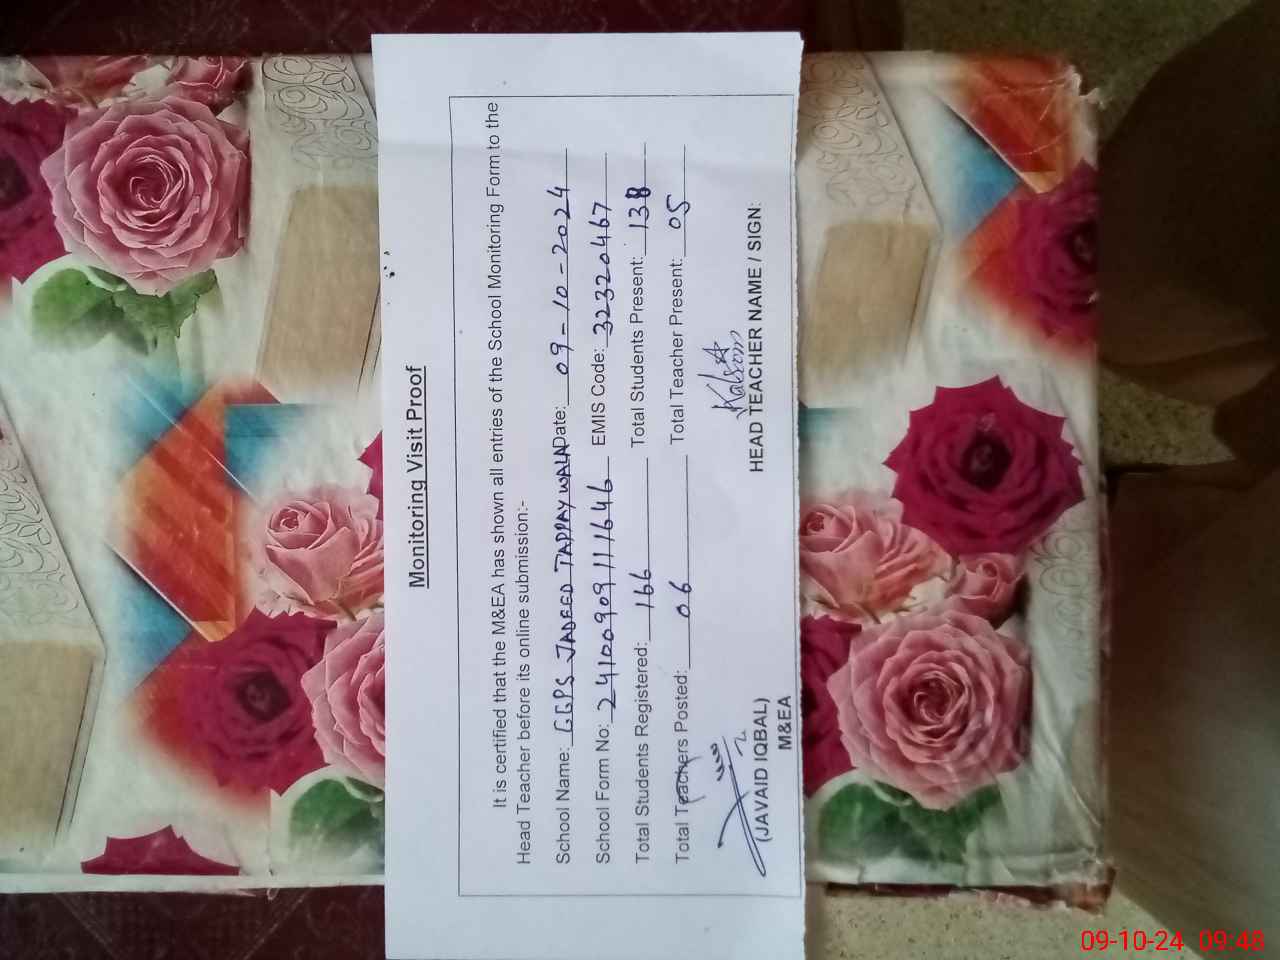 Monitoring Visit Proof
It is certified that the M&EA has shown all entries of the School Monitoring Form to the
Head Teacher before its online submission:-
School Name: GGPS JADEED TAPPAY WALA Date: 09-10-2024
School Form No: 24100909111646 EMIS Code: 32320467
Total Students Registered: 166 Total Students Present: 138
Total Teachers Posted: 06 Total Teacher Present: 05
Kalsoom
(JAVAID IQBAL) HEAD TEACHER NAME / SIGN:
M&EA
09-10-24 09:48